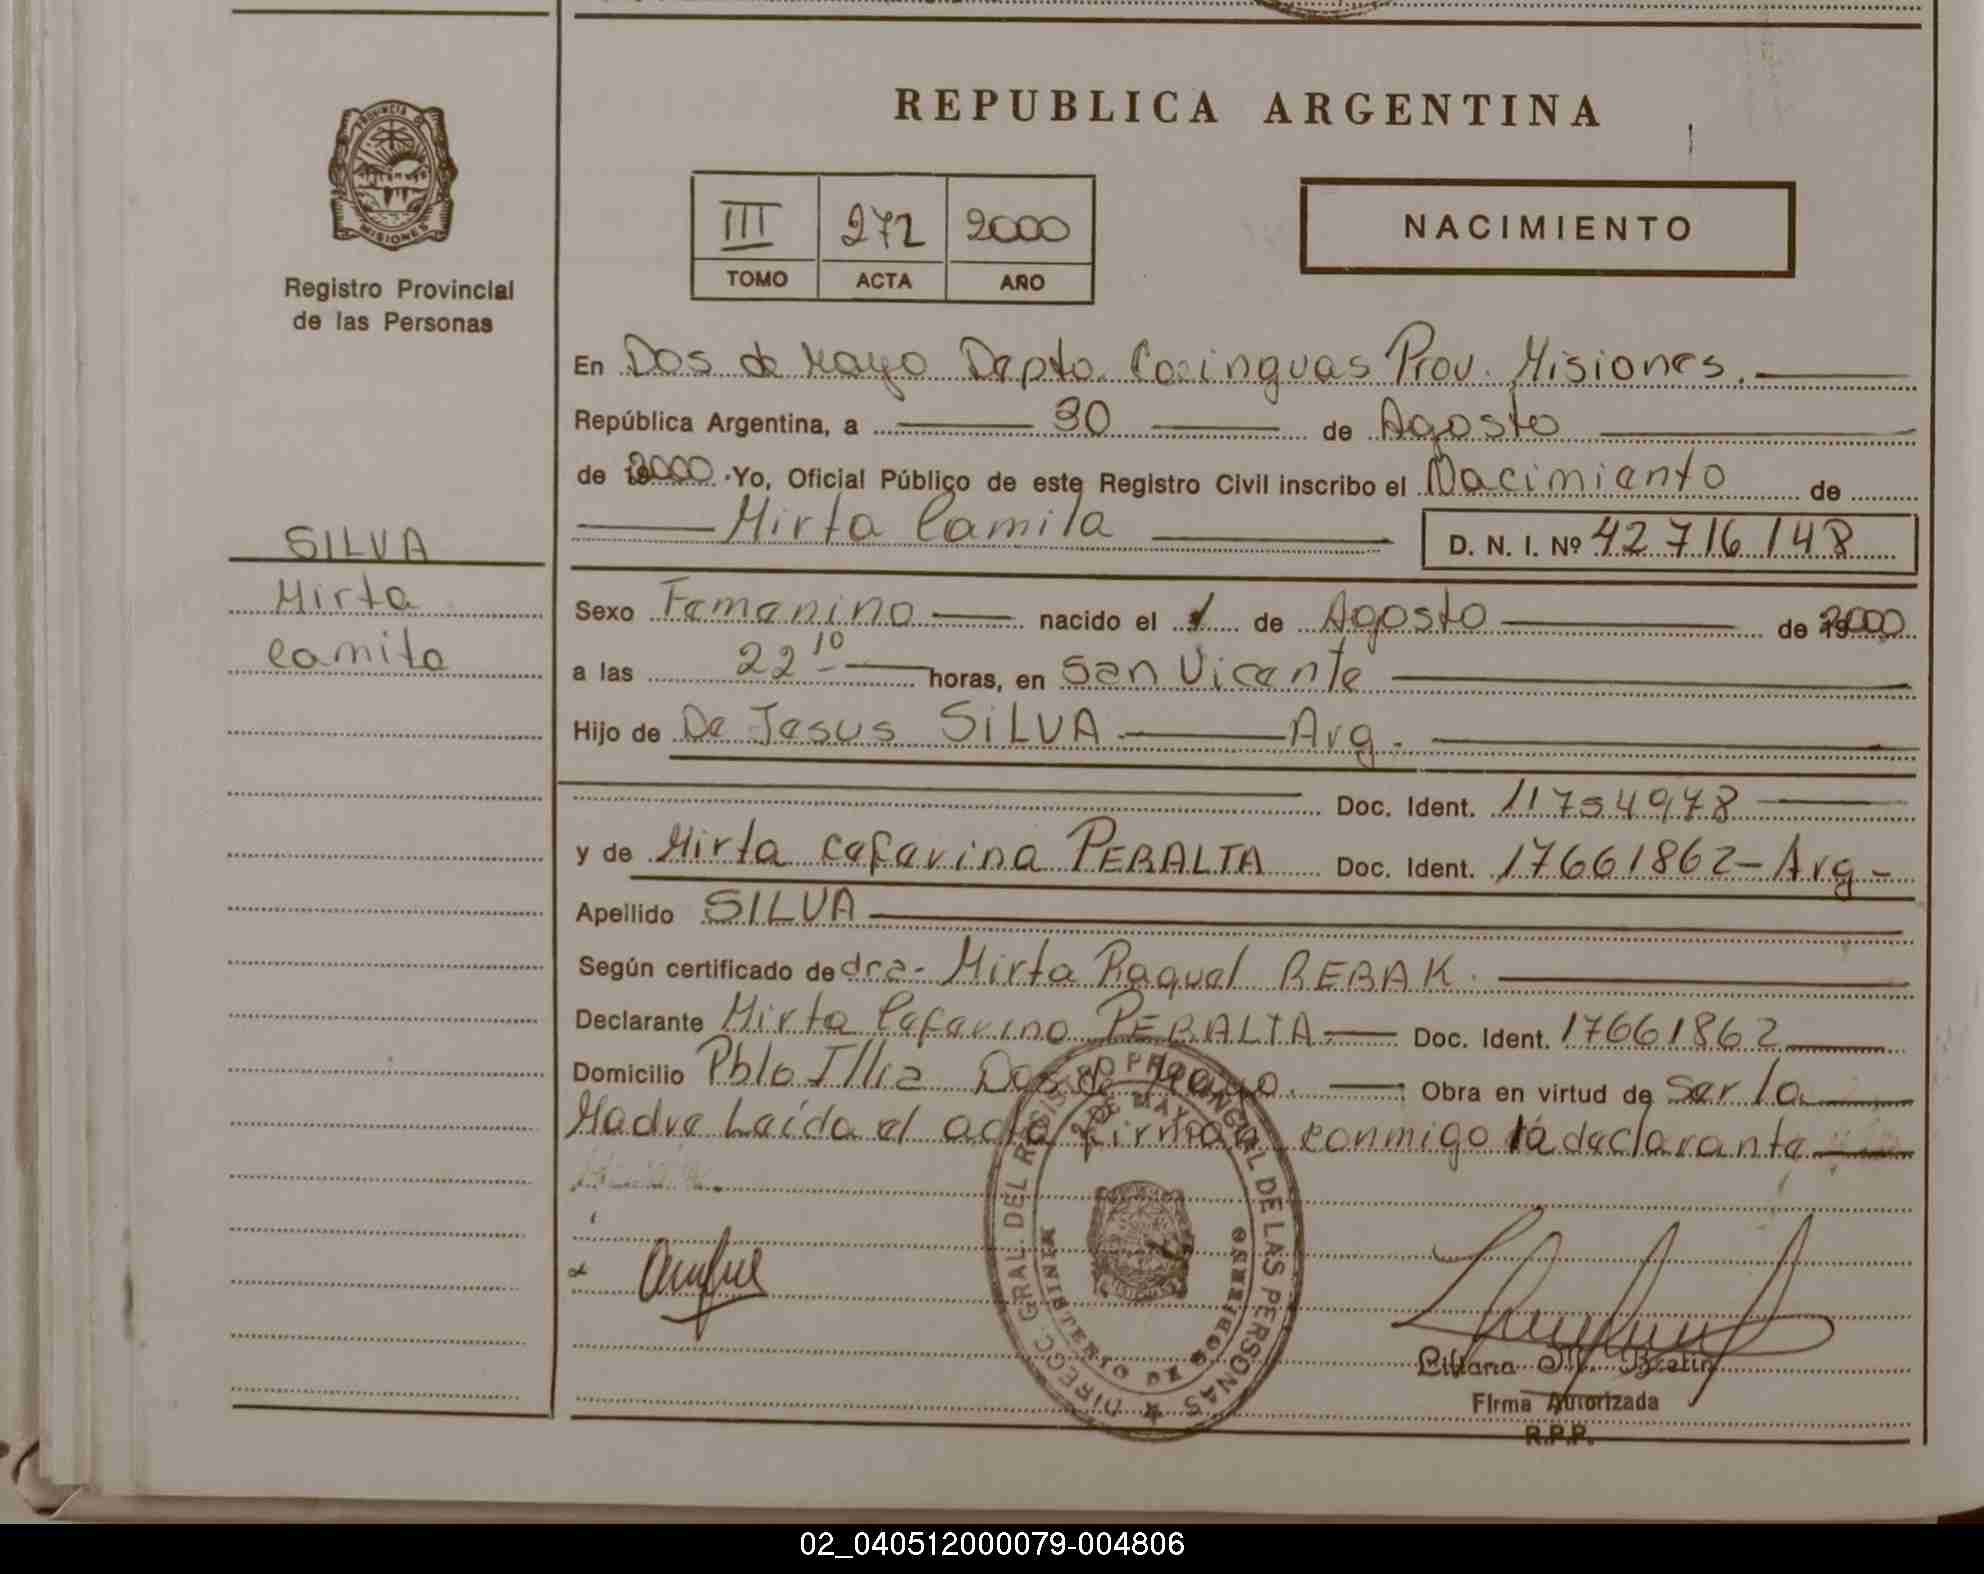 REPUBLICA ARGENTINA
PROVINCIA DE
MISIONES
Registro Provincial
de las Personas
III 272 2000
TOMO ACTA AÑO
NACIMIENTO
En Dos de Mayo Depto. Cainguas Prov. Misiones.
República Argentina, a 30 de Agosto
de 2000. Yo, Oficial Público de este Registro Civil inscribo el Nacimiento de
Mirta Camila D. N. I. Nº 42716148
SILVA
Mirta
Camila
Sexo Femenino nacido el 1 de Agosto de 2000
a las 22 10 horas, en San Vicente
Hijo de De Jesus SILVA Arg.
Doc. Ident. 11754978
y de Mirta Ceferina PERALTA Doc. Ident. 17661862-Arg-
Apellido SILVA
Según certificado de dra- Mirta Raquel REBAK.
Declarante Mirta Ceferina PERALTA Doc. Ident. 17661862
Domicilio Pblo Illia Dos de Mayo. Obra en virtud de ser la
Madre Leída el acta firman conmigo la declarante
DIRECC. GRAL. DEL REGISTRO PROVINCIAL DE LAS PERSONAS
2 DE MAYO
MINISTERIO DE GOBIERNO
Liliana
Firma Autorizada
R.P.P.
02_040512000079-004806